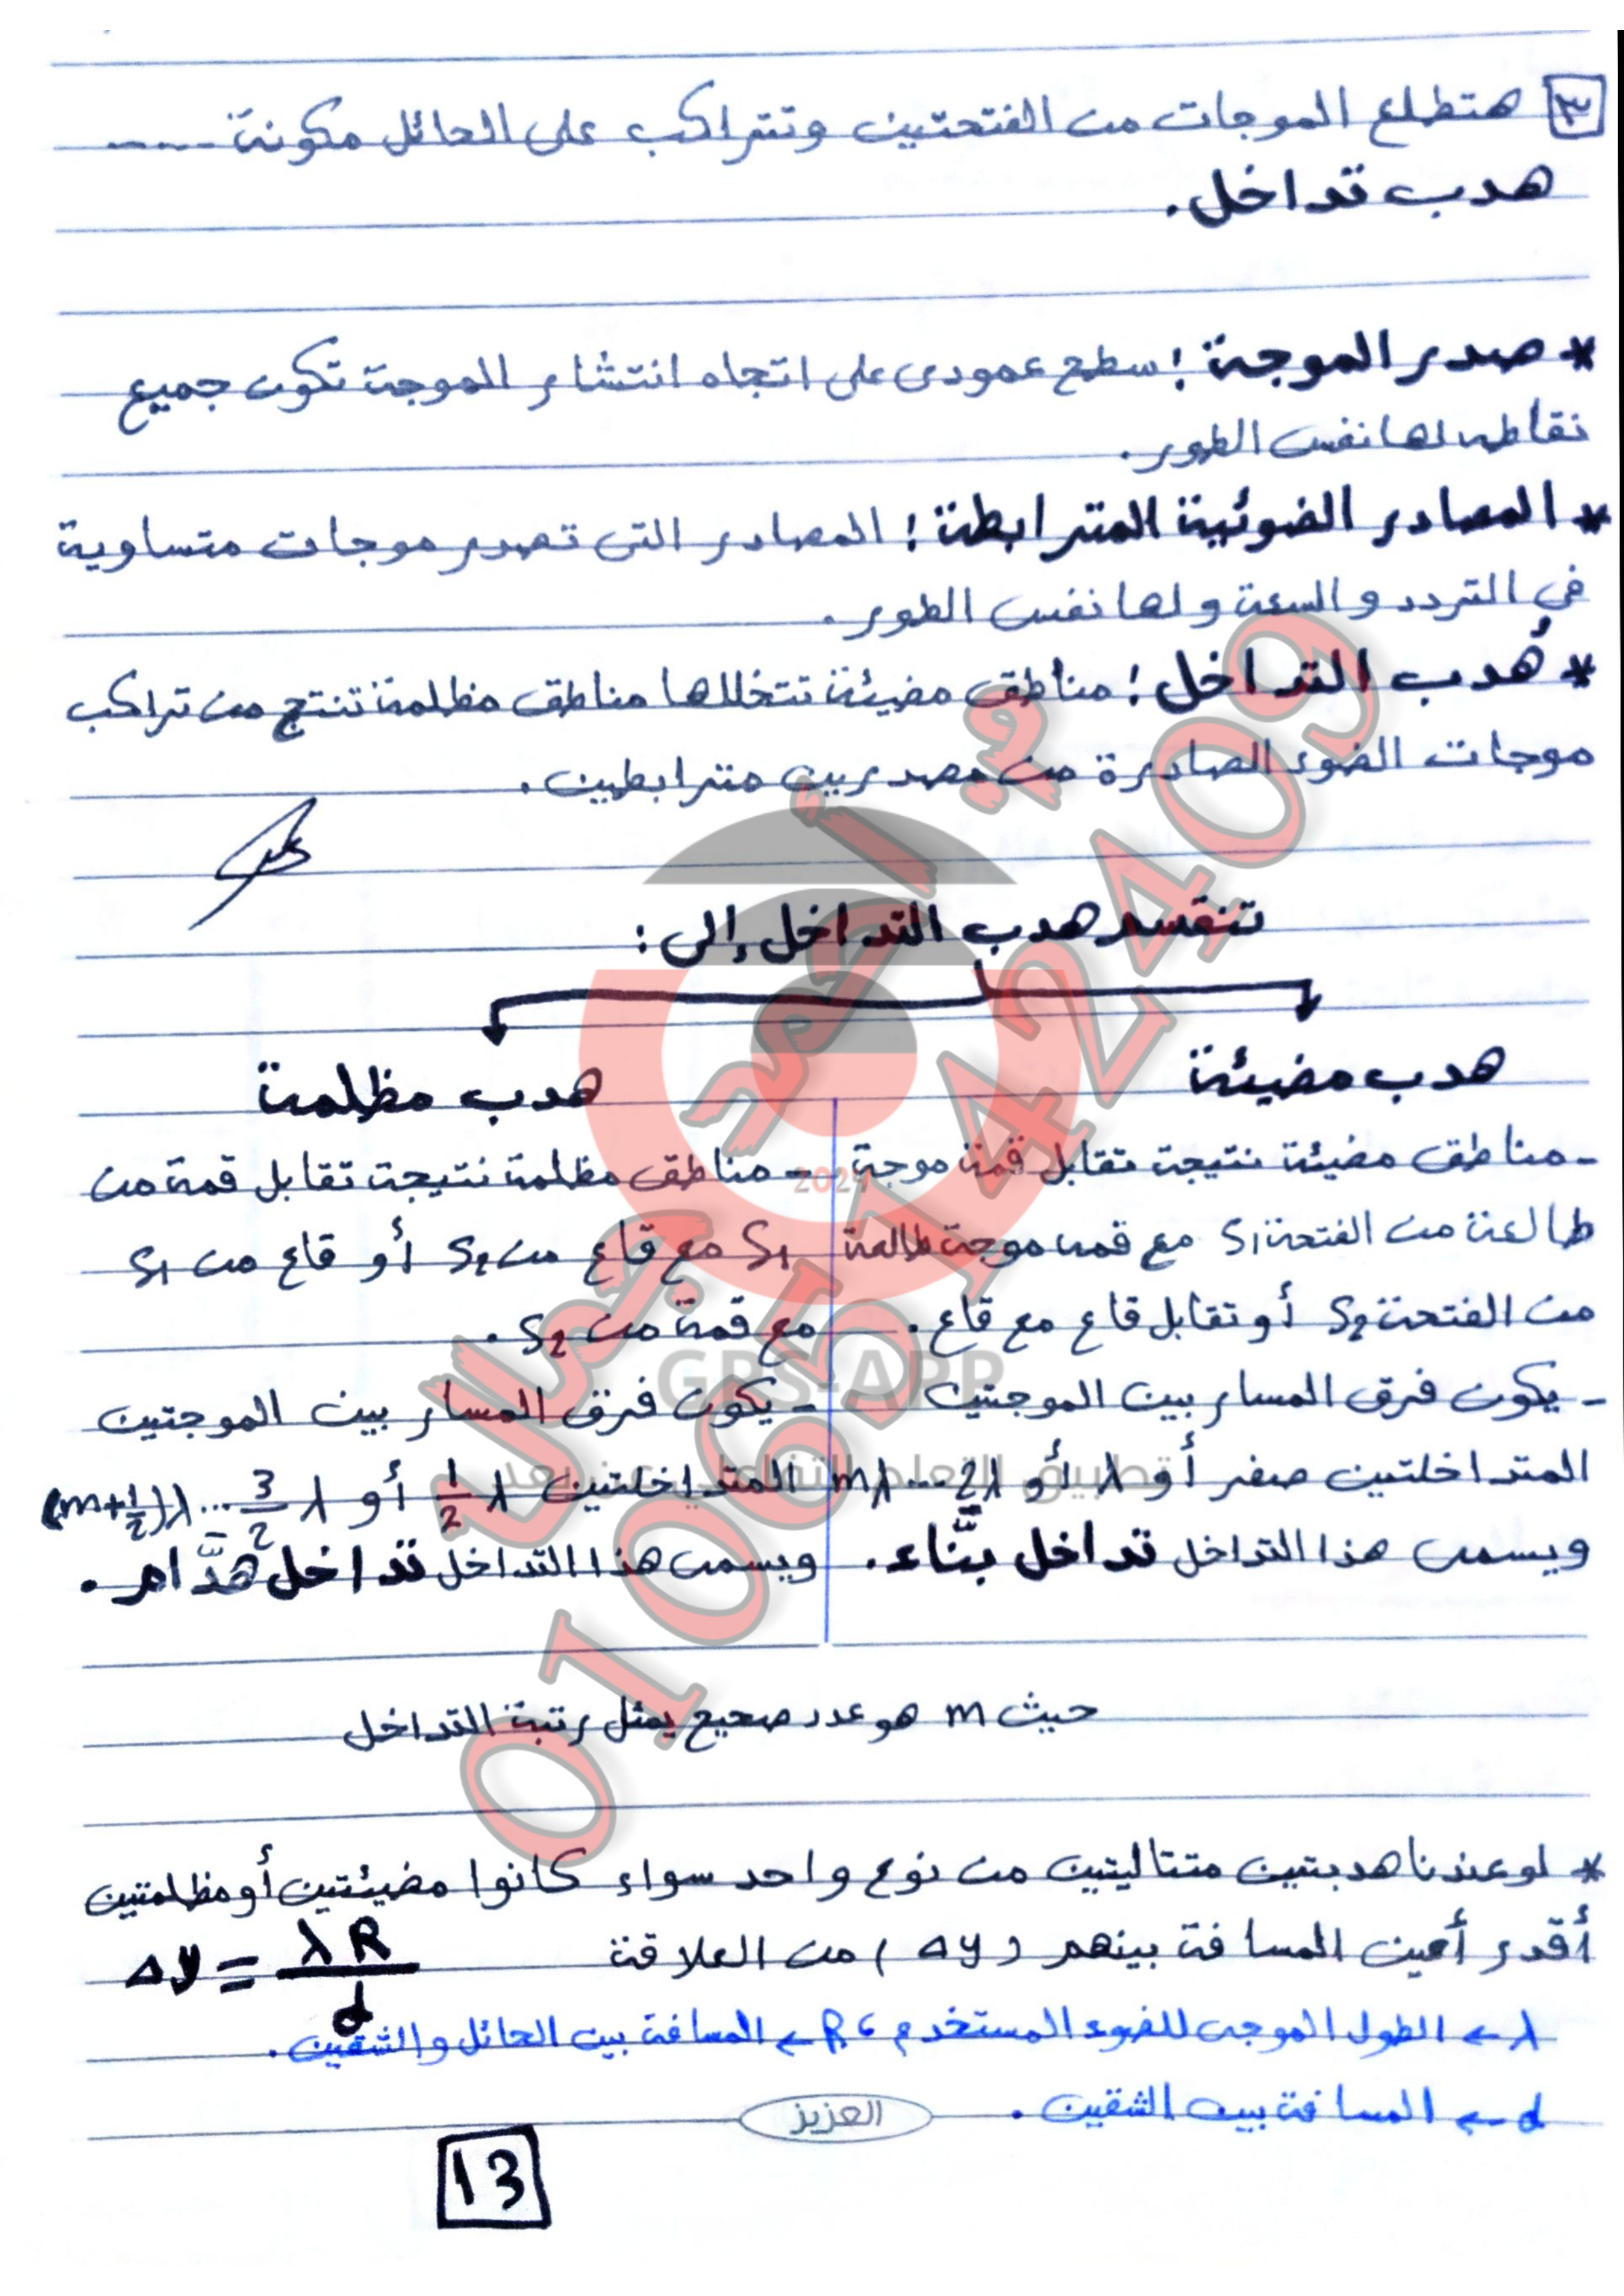 ٣ هتطلع الموجات من الفتحتين وتتراكب على الحائل مكونة -----
هدب تداخل.
* صدر الموجة : سطح عمودى على اتجاه انتشار الموجة تكون جميع
نقاطه لها نفس الطور.
* المصادر الضوئية المترابطة : المصادر التى تصدر موجات متساوية
في التردد والسعة ولها نفس الطور.
* هُدب التداخل : مناطق مضيئة تتخللها مناطق مظلمة تنتج من تراكب
موجات الضوء الصادرة من مصدريين مترابطين.
تنقسم هدب التداخل إلى :
هدب مضيئة
- مناطق مضيئة نتيجة تقابل قمة موجة
طالعة من الفتحة S1 مع قمه موجة طالعة
من الفتحة S2 أو تقابل قاع مع قاع.
- يكون فرق المسار بين الموجتين
المتداخلتين صفر أو λ أو 2λ ... mλ
ويسمى هذا التداخل تداخل بنَّاء.
هدب مظلمة
- مناطق مظلمة نتيجة تقابل قمة من
S1 مع قاع من S2 أو قاع من S1
مع قمة من S2.
- يكون فرق المسار بين الموجتين
المتداخلتين 1/2 λ أو 3/2 λ ... (m+1/2)λ
ويسمى هذا التداخل تداخل هدَّام.
حيث m هو عدد صحيح يمثل رتبة التداخل
* لو عندنا هدبتين متتاليتين من نوع واحد سواء كانوا مضيئتين أو مظلمتين
أقدر أعين المسافة بينهم (Δy) من العلاقة Δy = λR/d
λ ← الطول الموجى للضوء المستخدم ، R ← المسافة بين الحائل والشقين.
d ← المسافة بين الشقين.
العزيز
13
GPS-APP
01065142409